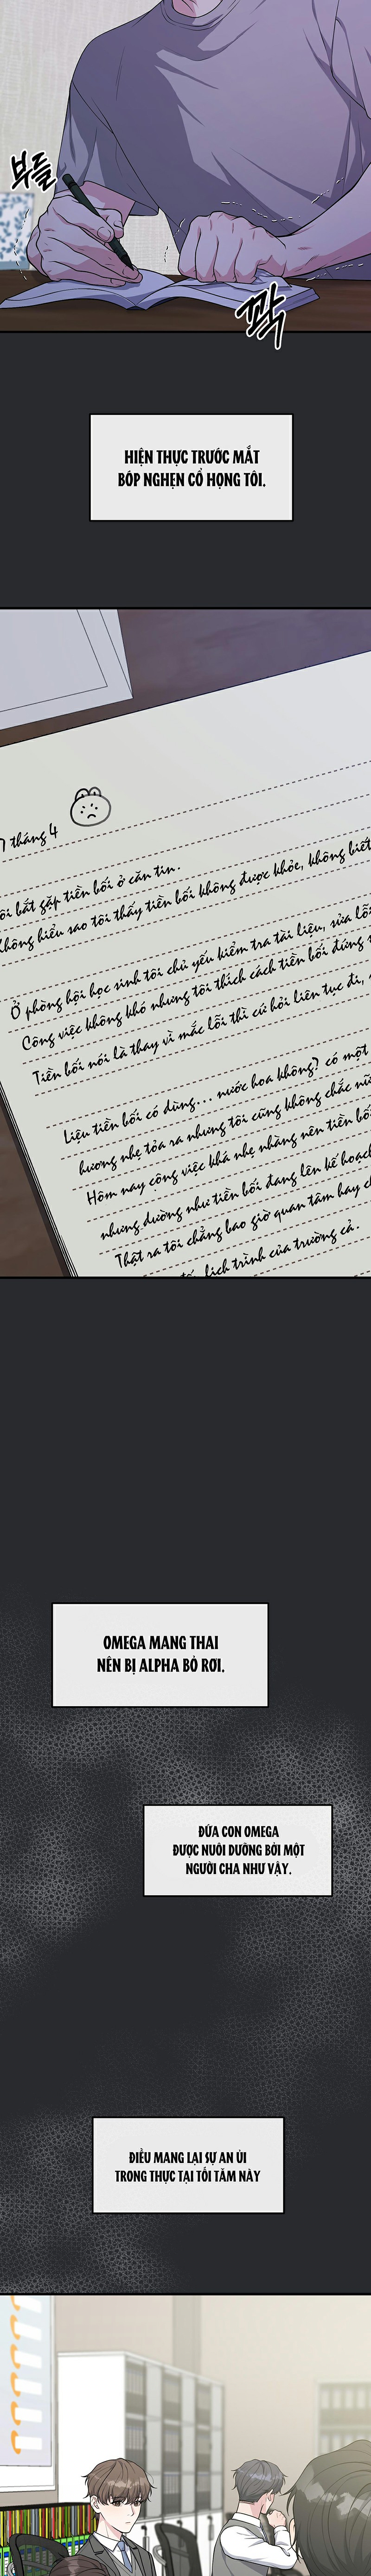 부들
꽉
HIỆN THỰC TRƯỚC MẮT
BÓP NGHẸN CỔ HỌNG TÔI.
7 tháng 4
ôi bắt gặp tiền bối ở căn tin.
không hiểu sao tôi thấy tiền bối không được khỏe, không biết
Ở phòng hội học sinh tôi chủ yếu kiểm tra tài liệu, sửa lỗi
Công việc không khó nhưng tôi thích cách tiền bối đứng
Tiền bối nói là thay vì mắc lỗi thì cứ hỏi liên tục đi,
Liệu tiền bối có dùng... nước hoa không? có một
hương nhẹ tỏa ra nhưng tôi cũng không chắc nữ
Hôm nay cọng việc khá nhẹ nhàng nên tiền bối
nhưng dường như tiền bối đang lên kế hoạch
Thật ra tôi chẳng bao giờ quan tâm hay ch
lịch trình của trường cả.
OMEGA MANG THAI
NÊN BỊ ALPHA BỎ RƠI.
ĐỨA CON OMEGA
ĐƯỢC NUÔI DƯỠNG BỞI MỘT
NGƯỜI CHA NHƯ VẬY.
ĐIỀU MANG LẠI SỰ AN ỦI
TRONG THỰC TẠI TỐI TĂM NÀY